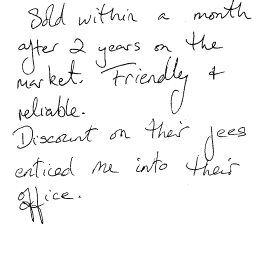 Sold within a month
after 2 years on the
market. Friendly &
reliable.
Discount on their fees
enticed me into their
office.